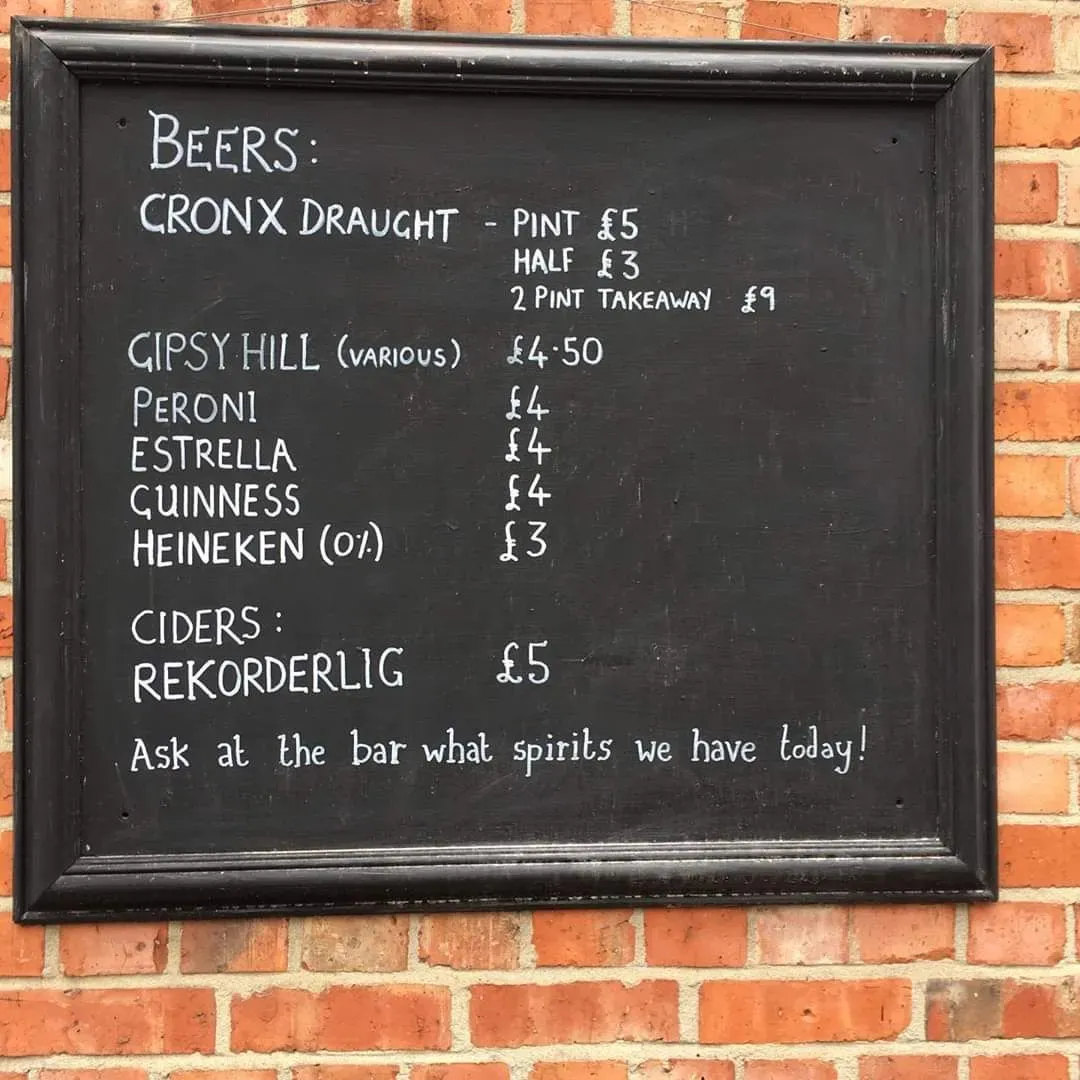 BEERS:
CRONX DRAUGHT - PINT £5
HALF £3
2 PINT TAKEAWAY £9
GIPSY HILL (VARIOUS) £4.50
PERONI £4
ESTRELLA £4
GUINNESS £4
HEINEKEN (0%) £3
CIDERS:
REKORDERLIG £5
Ask at the bar what spirits we have today!